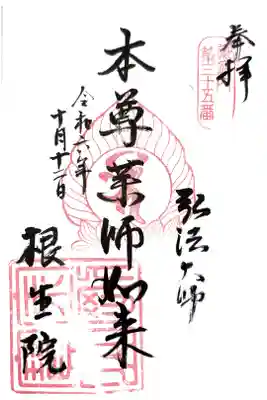 奉拝
第三十五番
弘法大師
本尊薬師如来
令和六年
十月十二日
根生院